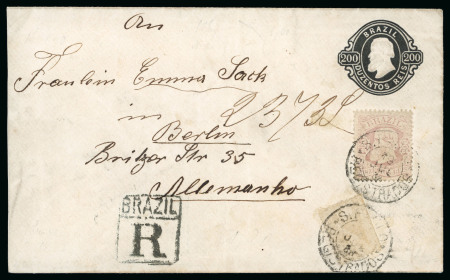 An
BRAZIL
200 200
DUZENTOS REIS
Fräulein Emma Sack
in
23732
Berlin
Britzer Str 35
Allemanho
BRAZIL
R